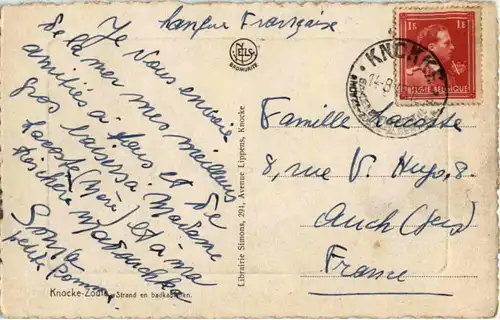 Langue Française
Je vous envoie
de la mer mes meilleurs
amitiés à tous et de
gros baisers à Madame
Lacoste (Mère) et à ma
chère Matouchka
Sonja
petite
NELS
BROMURITE
Knocke-Zoute. Strand en badkapellen.
Librairie Simons, 291, Avenue Lippens, Knocke
KNOKKE
1F 1F
BELGIE BELGIQUE
Famille Lacoste
8, rue V. Hugo, 8.
Auch (Gers)
France